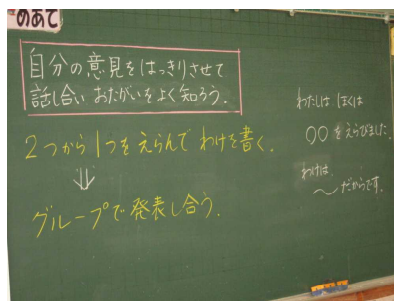 めあて
自分の意見をはっきりさせて
話し合い おたがいをよく知ろう.
2つから1つをえらんで わけを書く.
⇓
グループで発表し合う.
わたしは ぼくは
○○をえらびました.
わけは、
〜だからです.